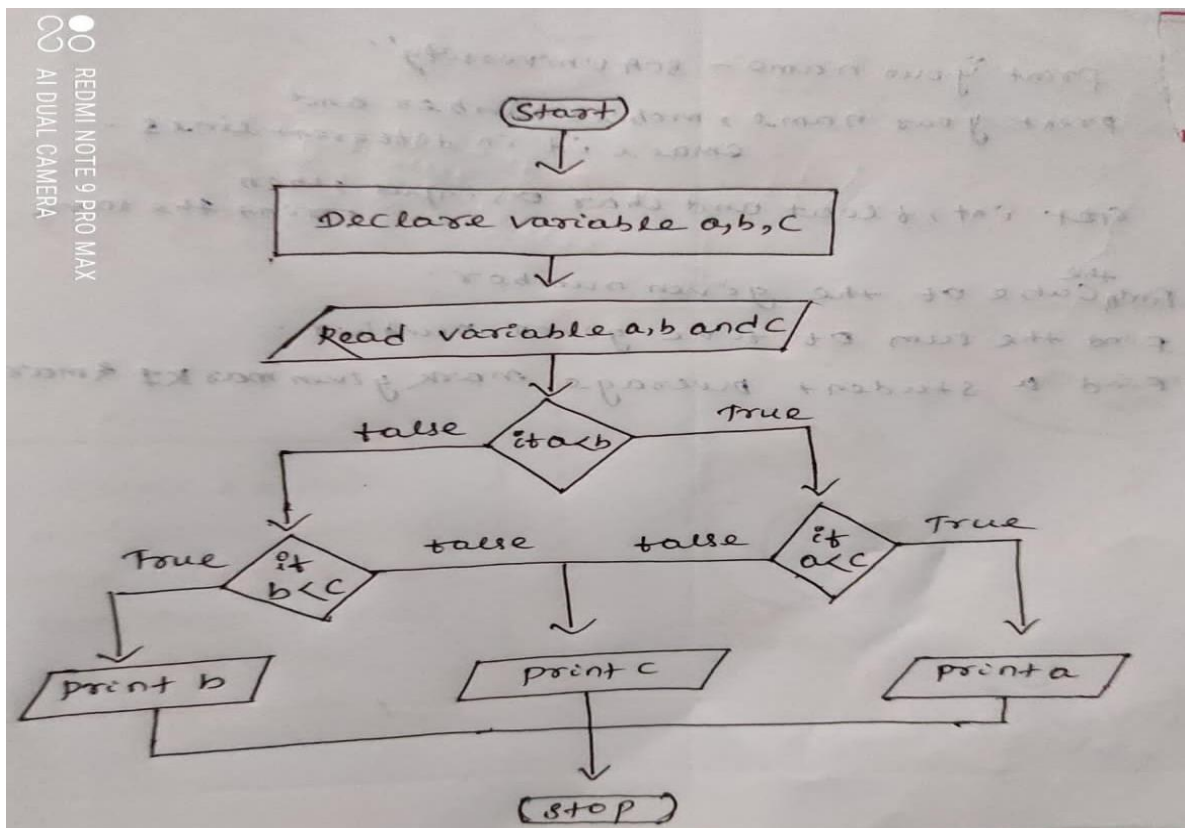 REDMI NOTE 9 PRO MAX
AI DUAL CAMERA
Start
Declare variable a,b,C
Read variable a,b and C
if a<b
false
True
if
b<C
True
false
if
a<C
false
True
print b
print C
print a
stop